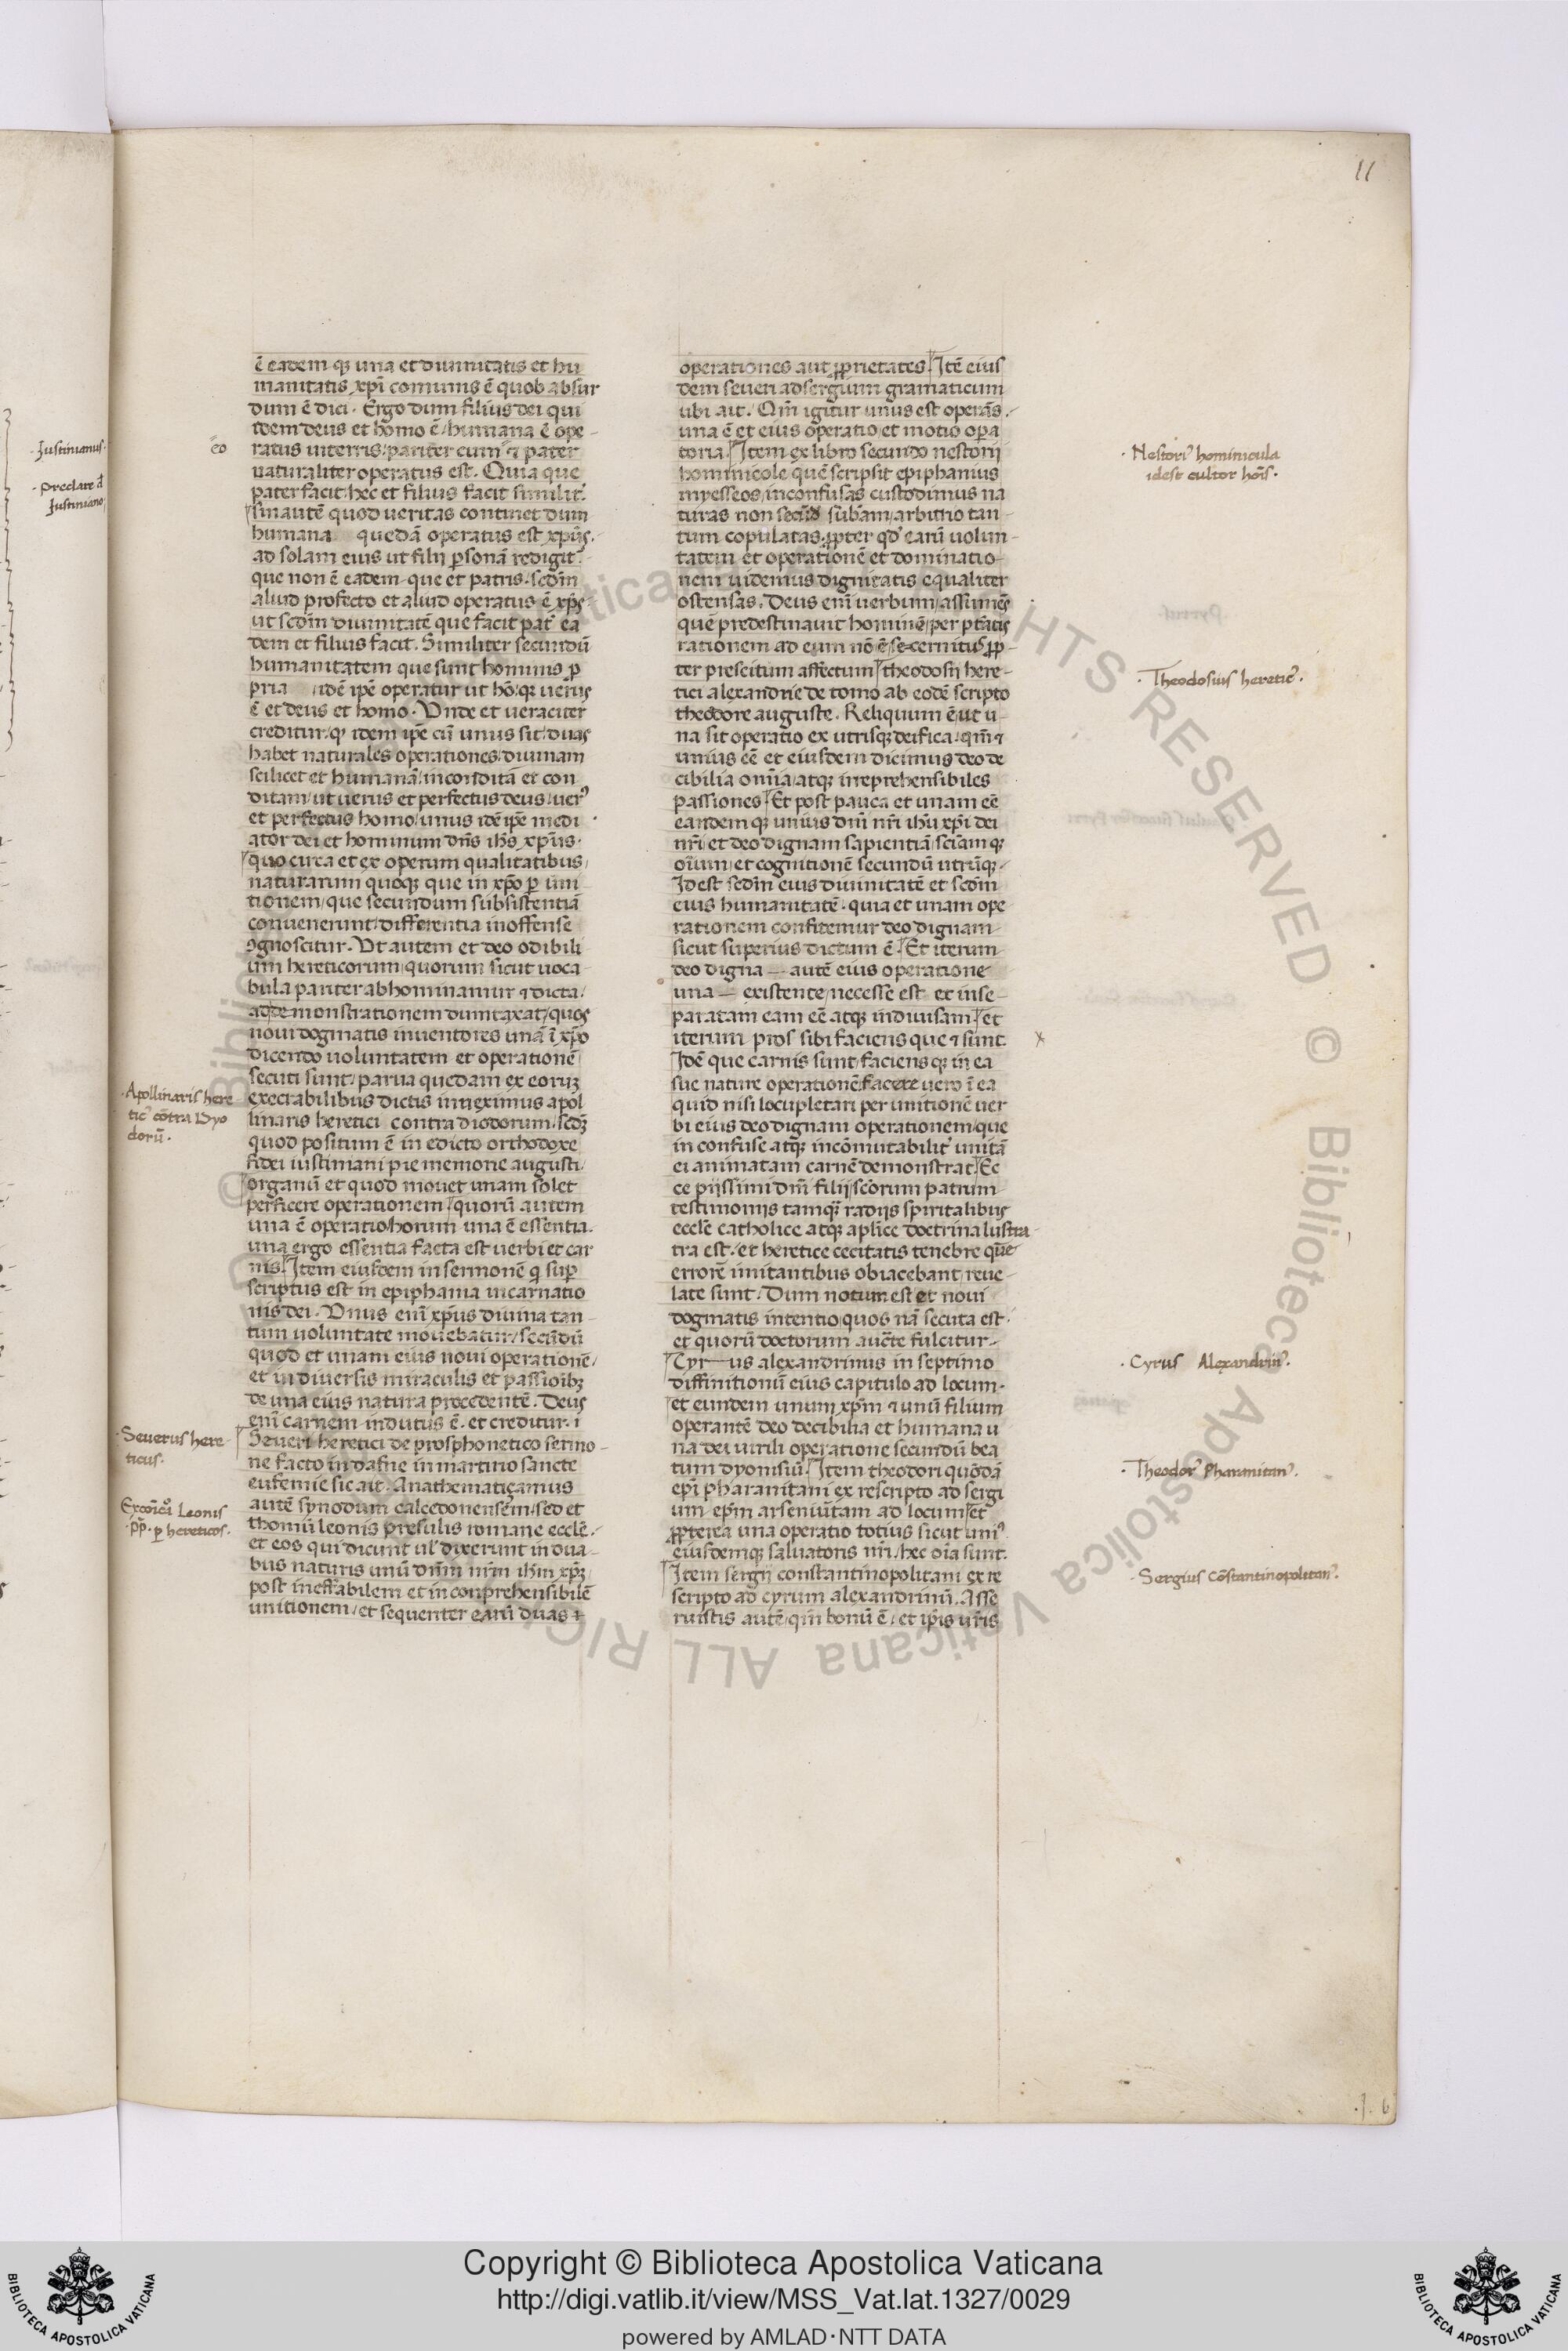 11
·Iustinianus·
·Preclare d̄
Iustiniano
ē eadem q; una et diuinitatis et hu
manitatis xp̄i comunis ē quob absur
dum ē dici· Ergo dum filius dei qui
idem deus et homo ē/humana ē ope-
ratus in terris/pariter cum & pater
naturaliter operatus est. Quia que
pater facit/hec et filius facit similit̄
sin autē quod ueritas continet dum
humana quedā operatus est xp̄us·
ad solam eius ut filii p̱sonā redigit̄·
que non ē eadem que et patris·scd̄m
aliud profecto et aliud operatus ē xp̄s
ut scd̄m diuinitatē que facit pat̄ ea
dem et filius facit. Similiter secundū
humanitatem que sunt hominis p̱
pria idē ip̄e operatur ut hō/q; uerus
ē et deus et homo· Vnde et ueraciter
creditur/q' idem ip̄e cū unus sit/duas
habet naturales operationes/diuinam
scilicet et humanā/inconditā et con
ditam/ut uerus et perfectus deus/uer'
et perfectus homo/unus idē ip̄e medi
ator dei et hominum dn̄s ih̄s xp̄us·
quo circa et ex operum qualitatibus/
naturarum quoq; que in xp̄o p̱ uni
tionem/que secundum subsistentiā
conuenerunt/differentia inoffense
ɔgnoscitur· Vt autem et deo odibili
um hereticorum/quorum sicut uoca-
bula pariter abhominamur & dicta/
ad demonstrationem dumtaxat/quos
noui dogmatis inuentores unā ī xp̄o
dicendo uoluntatem et operationē
secuti sunt/parua quedam ex eorum
execrabilibus dictis inneximus apol
linaris heretici contra diodorum/scd̄z
quod positum ē in edicto orthodoxe
fidei iustiniani pie memorie augusti/
organū et quod mouet unam solet
perficere operationem/quorū autem
una ē operatio/horum una ē essentia·
una ergo essentia facta est uerbi et car
nis. Item eiusdem in sermonē q sup̱
scriptus est in epiphania incarnatio
nis dei· Vnus eni xp̄us diuina tan-
tum uoluntate mouebatur/secundū
quod et unam eius noui operationē/
et in diuersis miraculis et passioib;
de una eius natura procedentē. Deus
eni carnem indutus ē· et creditur· i
Seueri heretici de prosphonetico sermo-
ne facto in dafne in martirio sancte
eufemie sic ait· Anathematiçamus
autē synodum calcedonensem/sed et
thomū leonis presulis romane eccl̄e·
et eos qui dicunt ul̄ dixerunt in dua-
bus naturis unū dn̄m nr̄m ih̄m xp̄z/
post ineffabilem et inconprehensibilē
unitionem/et sequenter earū duas &
=eo
·Apollinaris here
tic' cōtra Dyo
dorū·
·Seuerus here-
ticus·
Excōicō Leonis
·pp̄· p̱ hereticos·
operationes aut p̱prietates. Itē eius
dem seueri ad sergium gramaticum
ubi ait· Qm̄ igitur unus est operās·
una ē et eius operatio/et motio opa
toria. Item ex libro secundo nestorii
hominicole quē scripsit epiphanius
myesseos/inconfusas custodimus na
turas non secūd sub̄am/arbitrio tan-
tum copulatas·p̱pter qd̄ earū uolun-
tatem et operationē et dominatio-
nem uidemus dignitatis equaliter
ostensas· Deus eni uerbum/assumēs
quē predestinauit hominē/per ptatis
rationem ad eum nō ē secernitus p̱p-
ter prescitum affectum theodosii here-
tici alexandrie de tomo ab eodē scripto
theodore auguste. Reliquum ē/ut u-
na sit operatio ex utrisq; deifica/qm̄ &
unius eē et eiusdem dicimus deo de
cibilia omīa/atq; irreprehensibiles
passiones. Et post pauca et unam eē
eandem q; unius dn̄i nr̄i ih̄u xp̄i dei
nr̄i et deo dignam sapientiā/sciam q;
oīum/et cognitionē secundū utrūq;·
Id est scd̄m eius diuinitatē et scd̄m
eius humanitatē· quia et unam ope
rationem confitemur deo dignam
sicut superius dictum ē. Et iterum
deo digna — autē eius operatione
una — existente/necesse est et inse-
paratam eam eē atq; indiuisam. et
iterum pros sibi faciens que & sunt.
Idē que carnis sunt/faciens q; in ea
sue nature operationē/facere uero ī ea
quid nisi locupletari per unitionē uer
bi eius deo dignam operationem/que
inconfuse atq; incōmutabilit' unitā
ei animatam carnē demonstrat. Ec
ce piissimi dn̄i filii/sc̄orum patrum
testimoniis tamq; radiis spiritalibus
eccl̄e catholice atq; aplice doctrina lustra
tra est/et heretice cecitatis tenebre que
errorē imitantibus obiacebant/reue-
late sunt. Dum notum est et noui
dogmatis intentio/quos nā secuta est·
et quorū doctorum auc̄te fulcitur·
Cyr—us alexandrinus in septimo
diffinitionū eius capitulo ad locum·
et eundem unum xp̄m & unū filium
operantē deo decibilia et humana u
na dei uirili operatione secundū bea
tum dyonisiū. Item theodori quōdā
ep̄i pharanitani ex rescripto ad sergi
um ep̄m arseniūtam ad locum/et
p̱pterea una operatio totius sicut uni'
eiusdemq; saluatoris nr̄i/hec oīa sunt.
Item sergii constantinopolitani ex re
scripto ad cyrum alexandrinū. Asse
ruistis autē/qm̄ bonū ē/et ip̄is ur̄is
·Nestori' hominicula
idest cultor hoīs·
·Theodosius heretic'·
x
·Cyrus Alexandrin'·
·Theodor' Pharanitan'·
·Sergius Cōstantinopolitan'·
·J· 6
© Biblioteca Apostolica Vaticana ALL RIGHTS RESERVED
Copyright © Biblioteca Apostolica Vaticana
http://digi.vatlib.it/view/MSS_Vat.lat.1327/0029
powered by AMLAD·NTT DATA
BIBLIOTECA APOSTOLICA VATICANA
BIBLIOTECA APOSTOLICA VATICANA